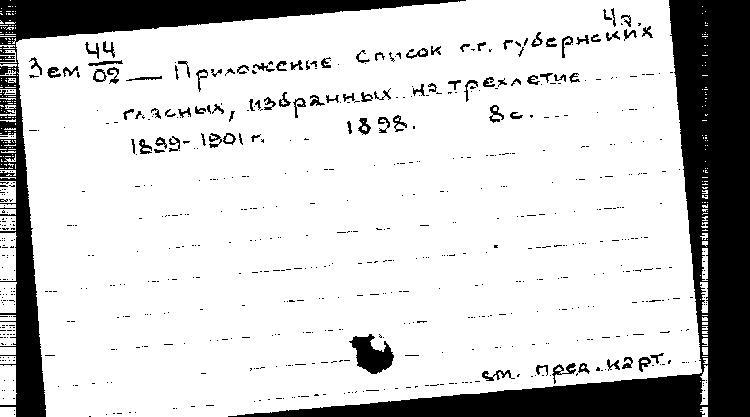 4д.
Зем 44/02 — Приложение. Список г.г. губернских
гласных, избранных на трехлетие
1899-1901 г. 1898. 8 с.
см. пред. карт.